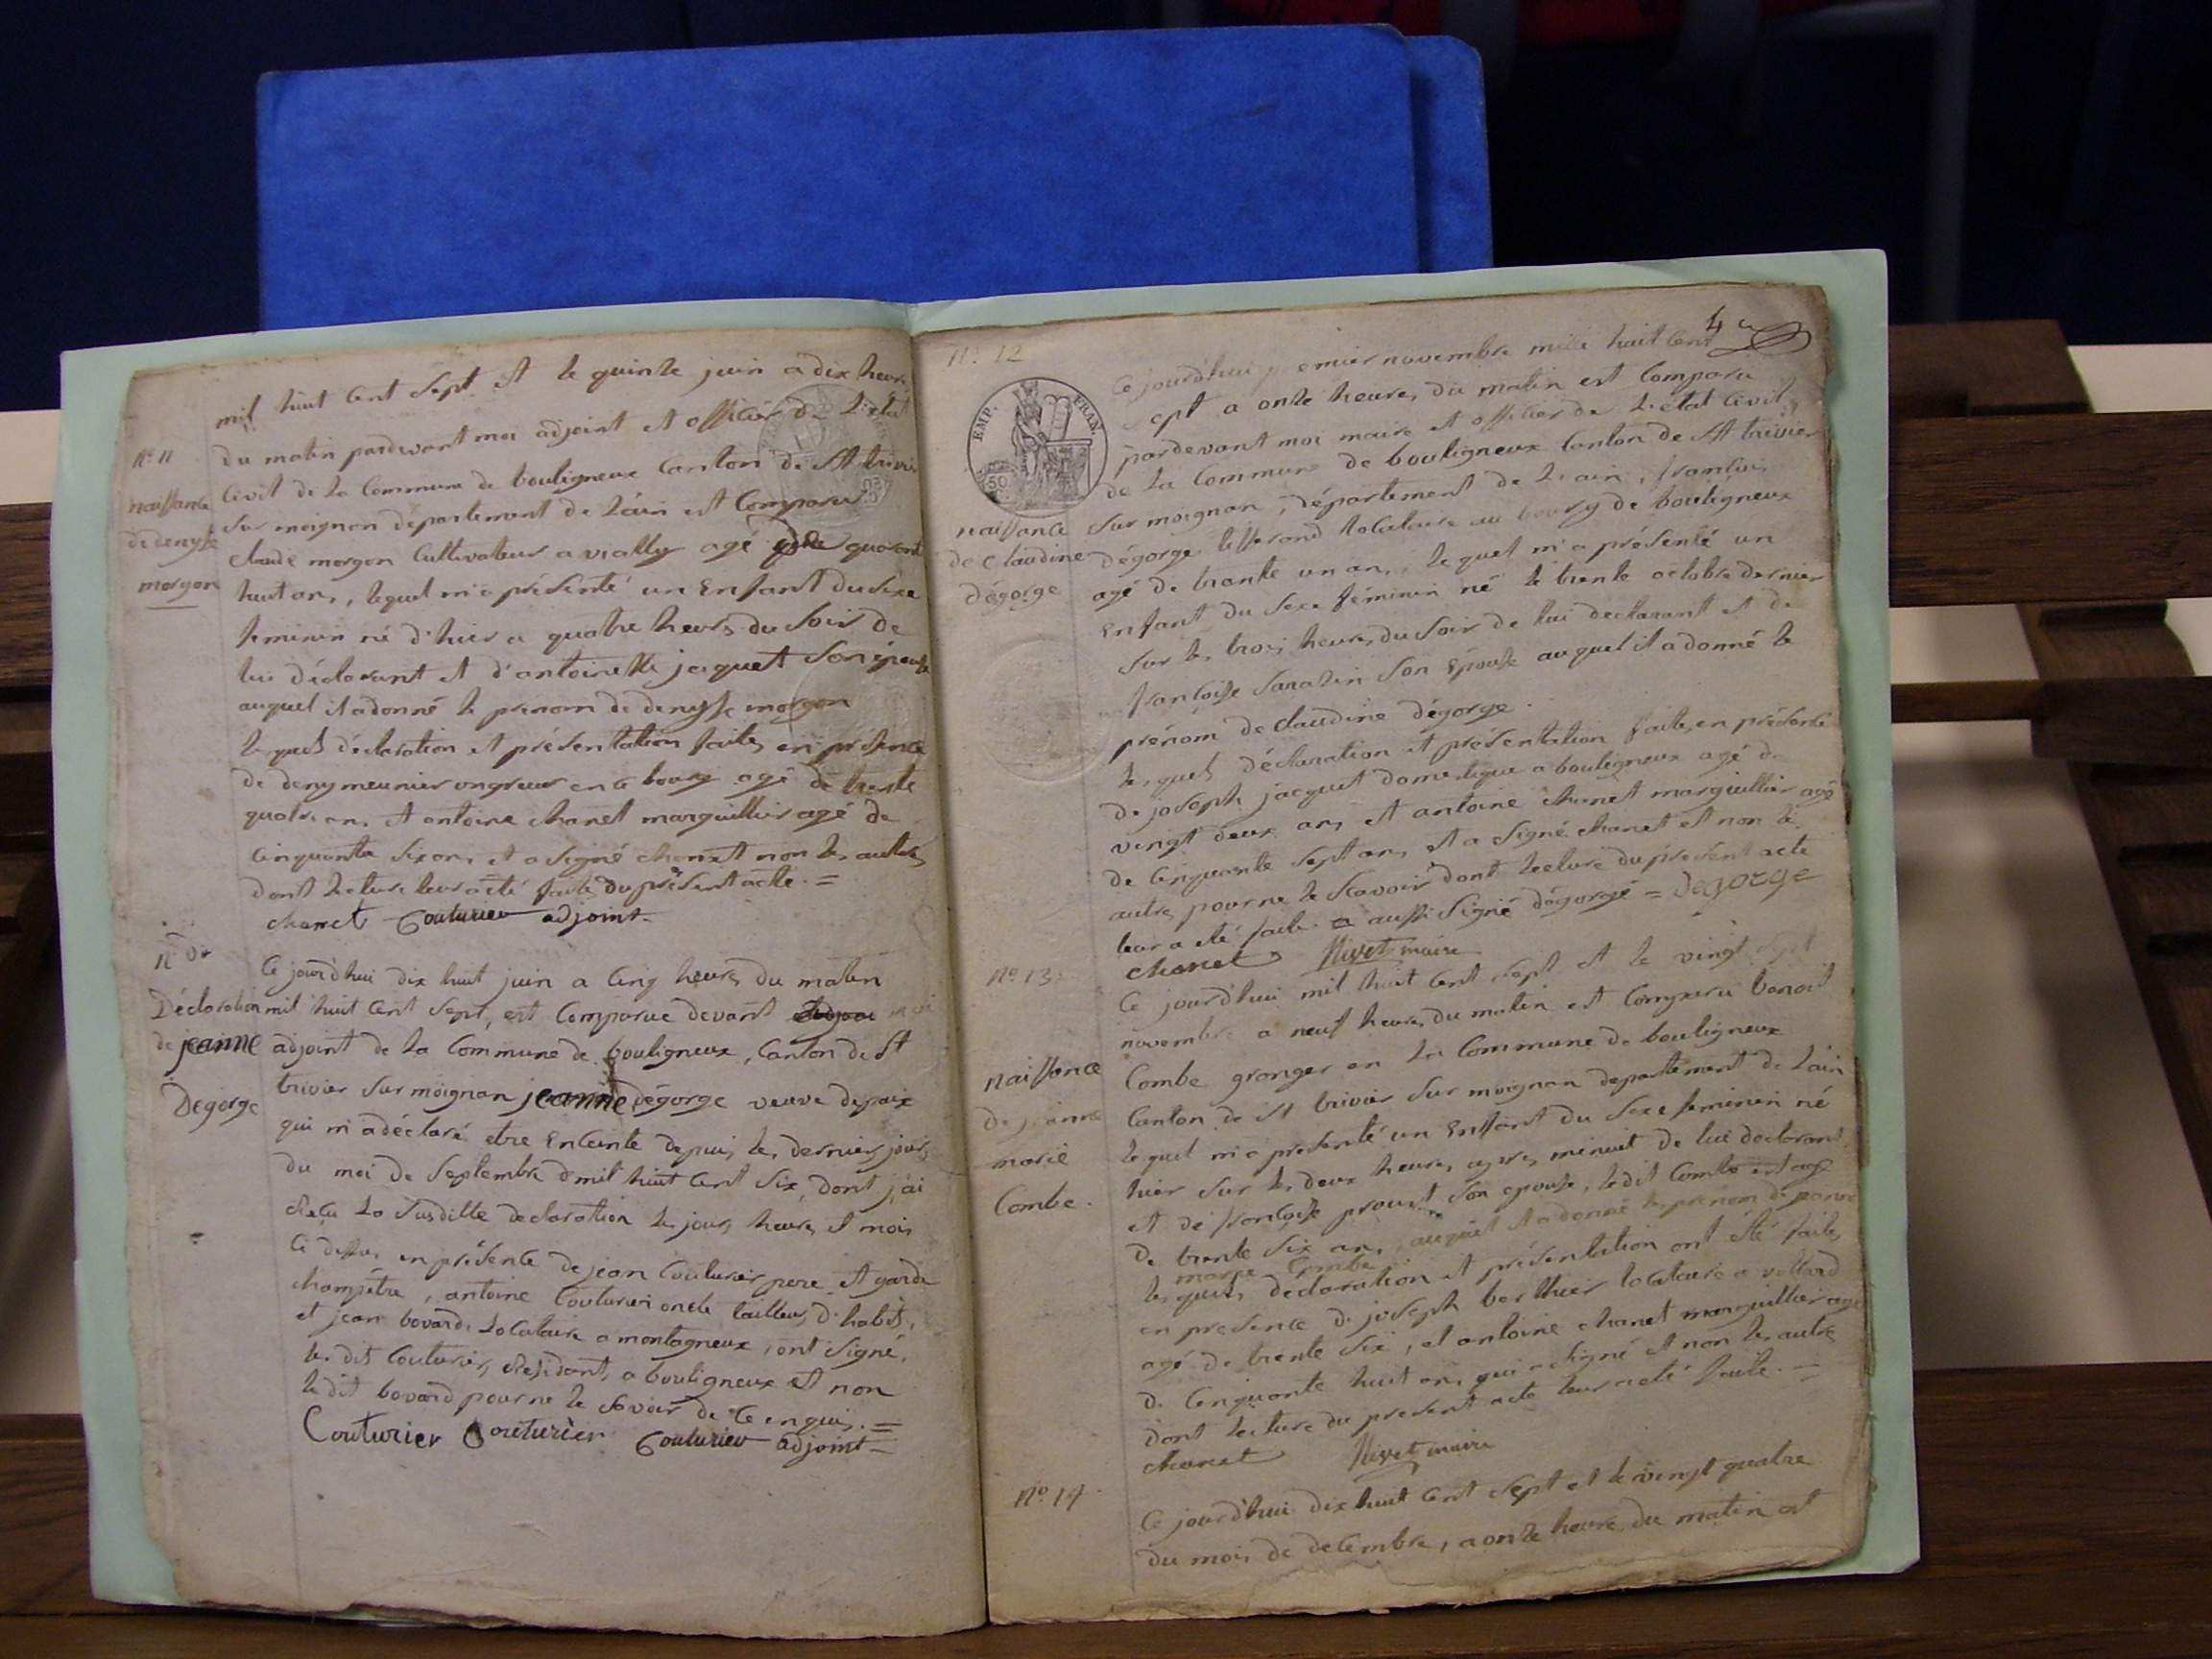 mil huit Cent Sept et le quinze juin a dix heures
N.° 11
du matin pardevant moi adjoint et officier de L'etat
Civil de la Commune de bouligneux Canton de St trivier
naissance
de denyse
morgon
Sur moignan département de L'ain est Comparu
claude morgon Cultivateur a vially agé de quarante
huit ans, lequel m'a présenté un Enfant du Sexe
feminin né d'hier a quatre heures du Soir de
lui déclarant et d'antoinette jaquet Son épouse
auquel il a donné le prenom de denyse morgon
lesquels déclaration et présentation faites en présence
de deny meunier ongreur en a bourg agé de trente
quatre ans et antoine chanel marguillier agé de
Cinquante six ans et a signé chanet non les autres
dont lecture leur a été faite du présent acte. =
chanet Couturier adjoint
N.°
Déclaration
de jeanne
Dégorge
Ce jourd'hui dix huit juin a Cinq heures du matin
mil huit Cent Sept, est Comparue devant moi
adjoint de la Commune de bouligneux, Canton de St
trivier Sur moignan jeanne dégorge veuve depaix
qui m'a déclaré etre Enceinte depuis les derniers jours
du moi de Septembre dmil huit Cent Six, dont j'ai
Reçu la Susditte declaration les jour, heure et mois
Ci dessus en présence de jean Couturier pere et garde
champêtre, antoine Couturier oncle tailleur d'habits,
et jean bovard Localaire a montagneux, ont Signé,
les dits Couturier, Résidant, a bouligneux et non
le dit bovard pour ne le Savoir de Ce enquis. =
Couturier Couturier Couturier adjoint =
4
N.° 12
EMP. FRAN.
50
naissance
de Claudine
Dégorge
Ce jourd'hui premier novembre mille huit Cent
Sept a onze heures du matin est Comparu
pardevant moi maire et officier de L'etat Civil
de la Commune de bouligneux Canton de St trivier
Sur moignan, département de L'ain, francois
Dégorge tisserand Localaire au bourg de bouligneux
agé de trente un an, lequel m'a présenté un
Enfant du Sexe féminin né le trente octobre dernier
Sur les trois heures du Soir de lui declarant et de
francoise Sarazin Son Epouse auquel il a donné le
prénom de claudine dégorge.
lesquels déclaration et présentation faites en présence
de joseph jacquet domestique a bouligneux agé de
vingt deux ans et antoine chanet marguillier agé
de Cinquante Sept ans et a Signé chanet et non les
autres pour ne le Scavoir dont lecture du présent acte
leur a été faite a aussi Signé dégorge = Degorge
chanet Nivet maire
N.° 13
Ce jourd'hui mil huit Cent Sept et le vingt
novembre a neuf heures du matin est Comparu benoit
naissance
de jeanne
marie
Combe.
Combe granger en la Commune de bouligneux
Canton de St trivier Sur moignan departement de L'ain
lequel m'a presenté un Enfant du Sexe feminin né
hier Sur les deux heures apres minuit de lui declarant
et de francoise proust Son epouse, ledit Combe est agé
de trente Six ans, auquel il a donné le prénom de jeanne
marie Combe
lesquels declaration et présentation ont été faites
en presence de joseph berthier localaire a vollard
agé de trente Six, et antoine chanet marguillier agé
de Cinquante huit ans qui a signé et non les autres
dont lecture du present acte leur a été faite. =
chanet Nivet maire
N.° 14
Ce jourd'hui dix huit Cent Sept et le vingt quatre
du mois de decembre, a onze heures du matin est